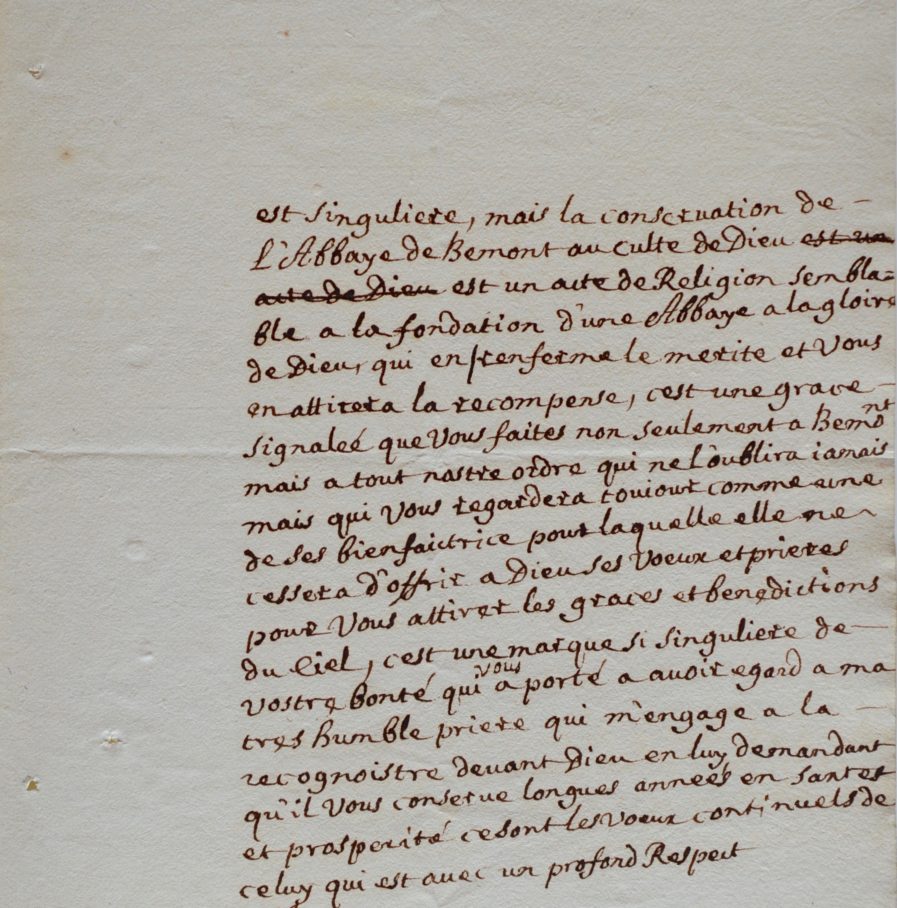 est singuliere, mais la conseruation de –
L'Abbaye de Bemont au culte de Dieu est un
acte de Dieu est un acte de Religion sembla=
ble a la fondation d'une Abbaye a la gloire
de Dieu, qui en renferme le merite et Vous
en attirera la recompense, c'est une grace –
signaleé que Vous faites non seulement a Bemont
mais a tout nostre ordre qui ne l'oublira iamais
mais qui Vous regardera touiour comme une
de ses bienfaictrice pour laquelle elle ne –
cessera d'offrir a Dieu ses Voeux et prieres
pour Vous attirer les graces et benedictions
du Ciel, c'est une marque si singuliere de –
vostre bonté qui vous a porté a auoir egard a ma
tres humble priere qui m'engage a la –
recognoistre deuant Dieu en luy demandant
qu'il Vous conserue longues années en santes
et prosperité ce sont les voeux continuels de
celuy qui est auec un profond Respect